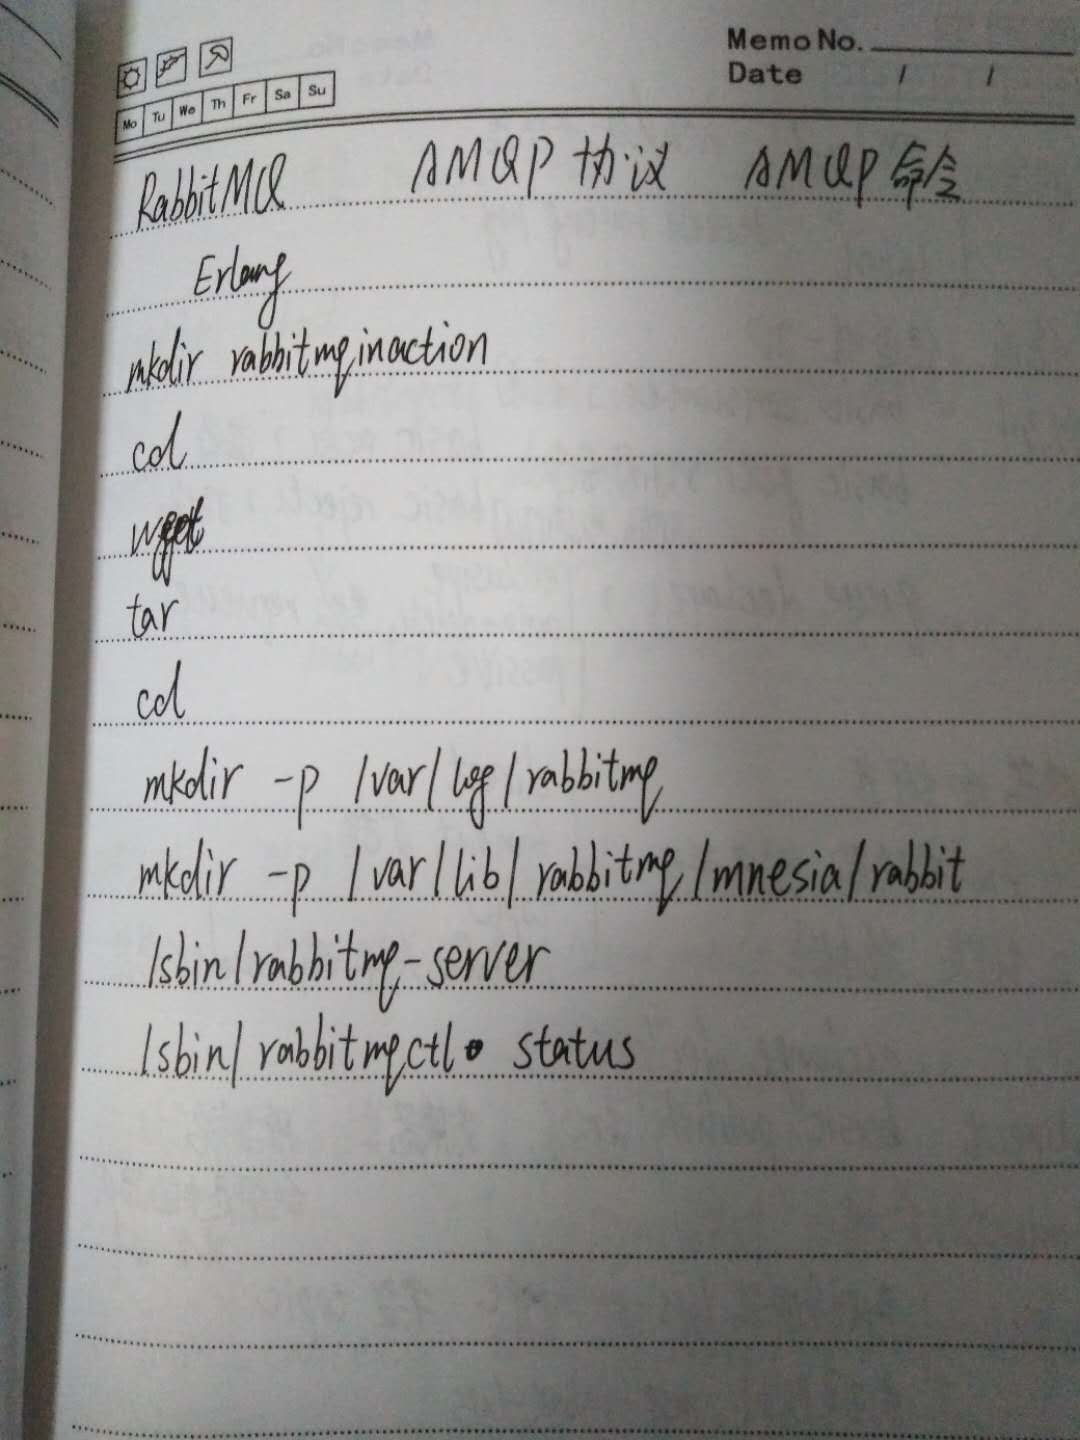 Memo No.
Date / /
Mo Tu We Th Fr Sa Su
RabbitMQ AMQP 协议 AMQP 命令
Erlang
mkdir rabbitmqinaction
cd
wget
tar
cd
mkdir -p /var/log/rabbitmq
mkdir -p /var/lib/rabbitmq/mnesia/rabbit
/sbin/rabbitmq-server
/sbin/rabbitmqctl status